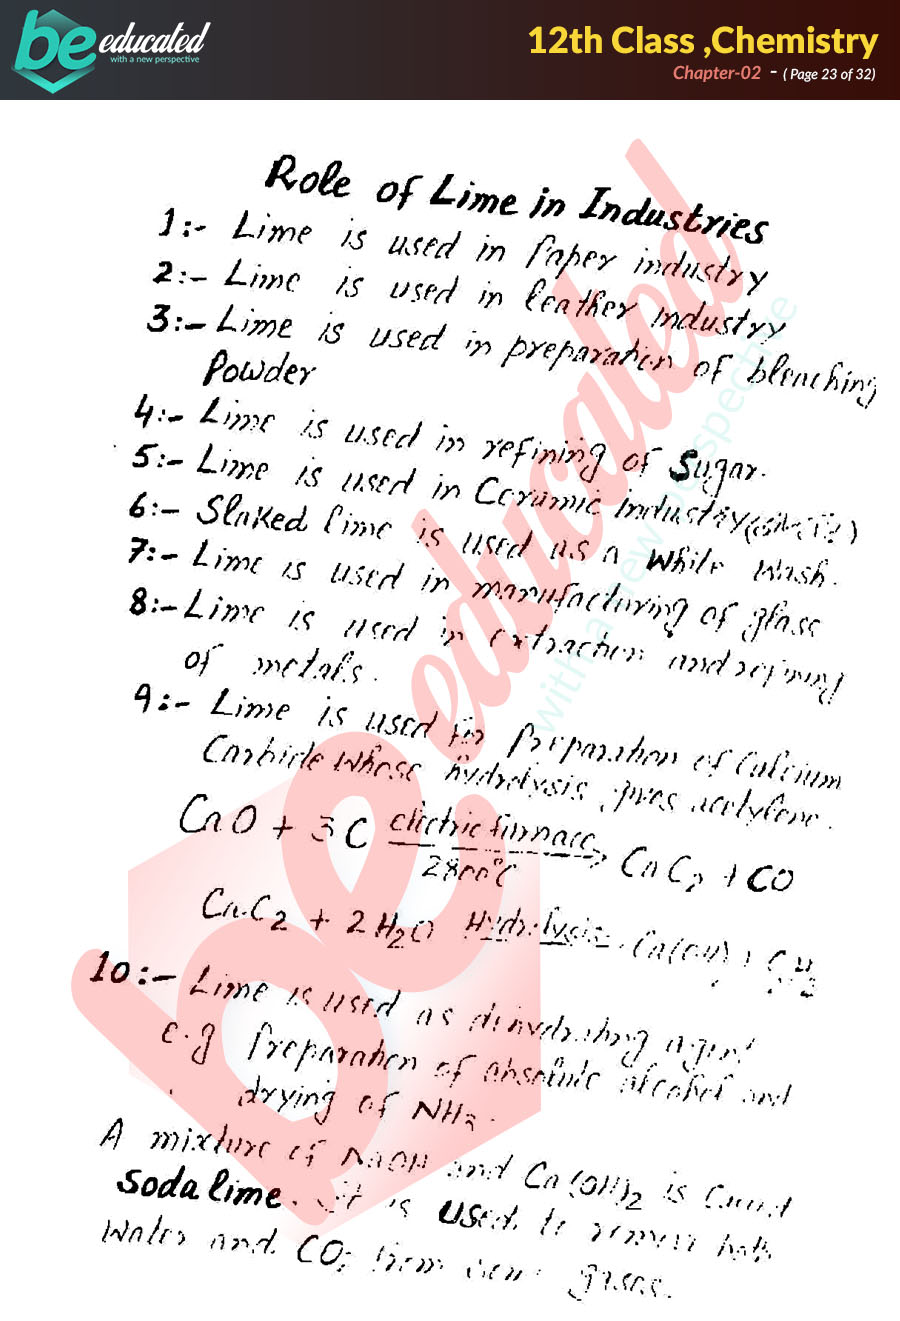 be educated
with a new perspective
12th Class ,Chemistry
Chapter-02 - ( Page 23 of 32)
Role of Lime in Industries
1:- Lime is used in Paper industry
2:- Lime is used in leather industry
3:- Lime is used in preparation of bleaching
Powder
4:- Lime is used in refining of Sugar.
5:- Lime is used in Ceramic industry
6:- Slaked lime is used as a while wash.
7:- Lime is used in manufacturing of glass
8:- Lime is used in extraction and refining
of metals.
9:- Lime is used for Preparation of Calcium
Carbide whose hydrolysis gives acetylene.
CaO + 3C electric furnace 2800°C → CaC2 + CO
CaC2 + 2H2O Hydrolysis Ca(OH)2 + C2H2
10:- Lime is used as dehydrating agent
e.g Preparation of absolute alcohol and
drying of NH3.
A mixture of NaOH and Ca(OH)2 is Called
Soda lime. It is used to remove both
Water and CO2 from gases.
be educated
with a new perspective